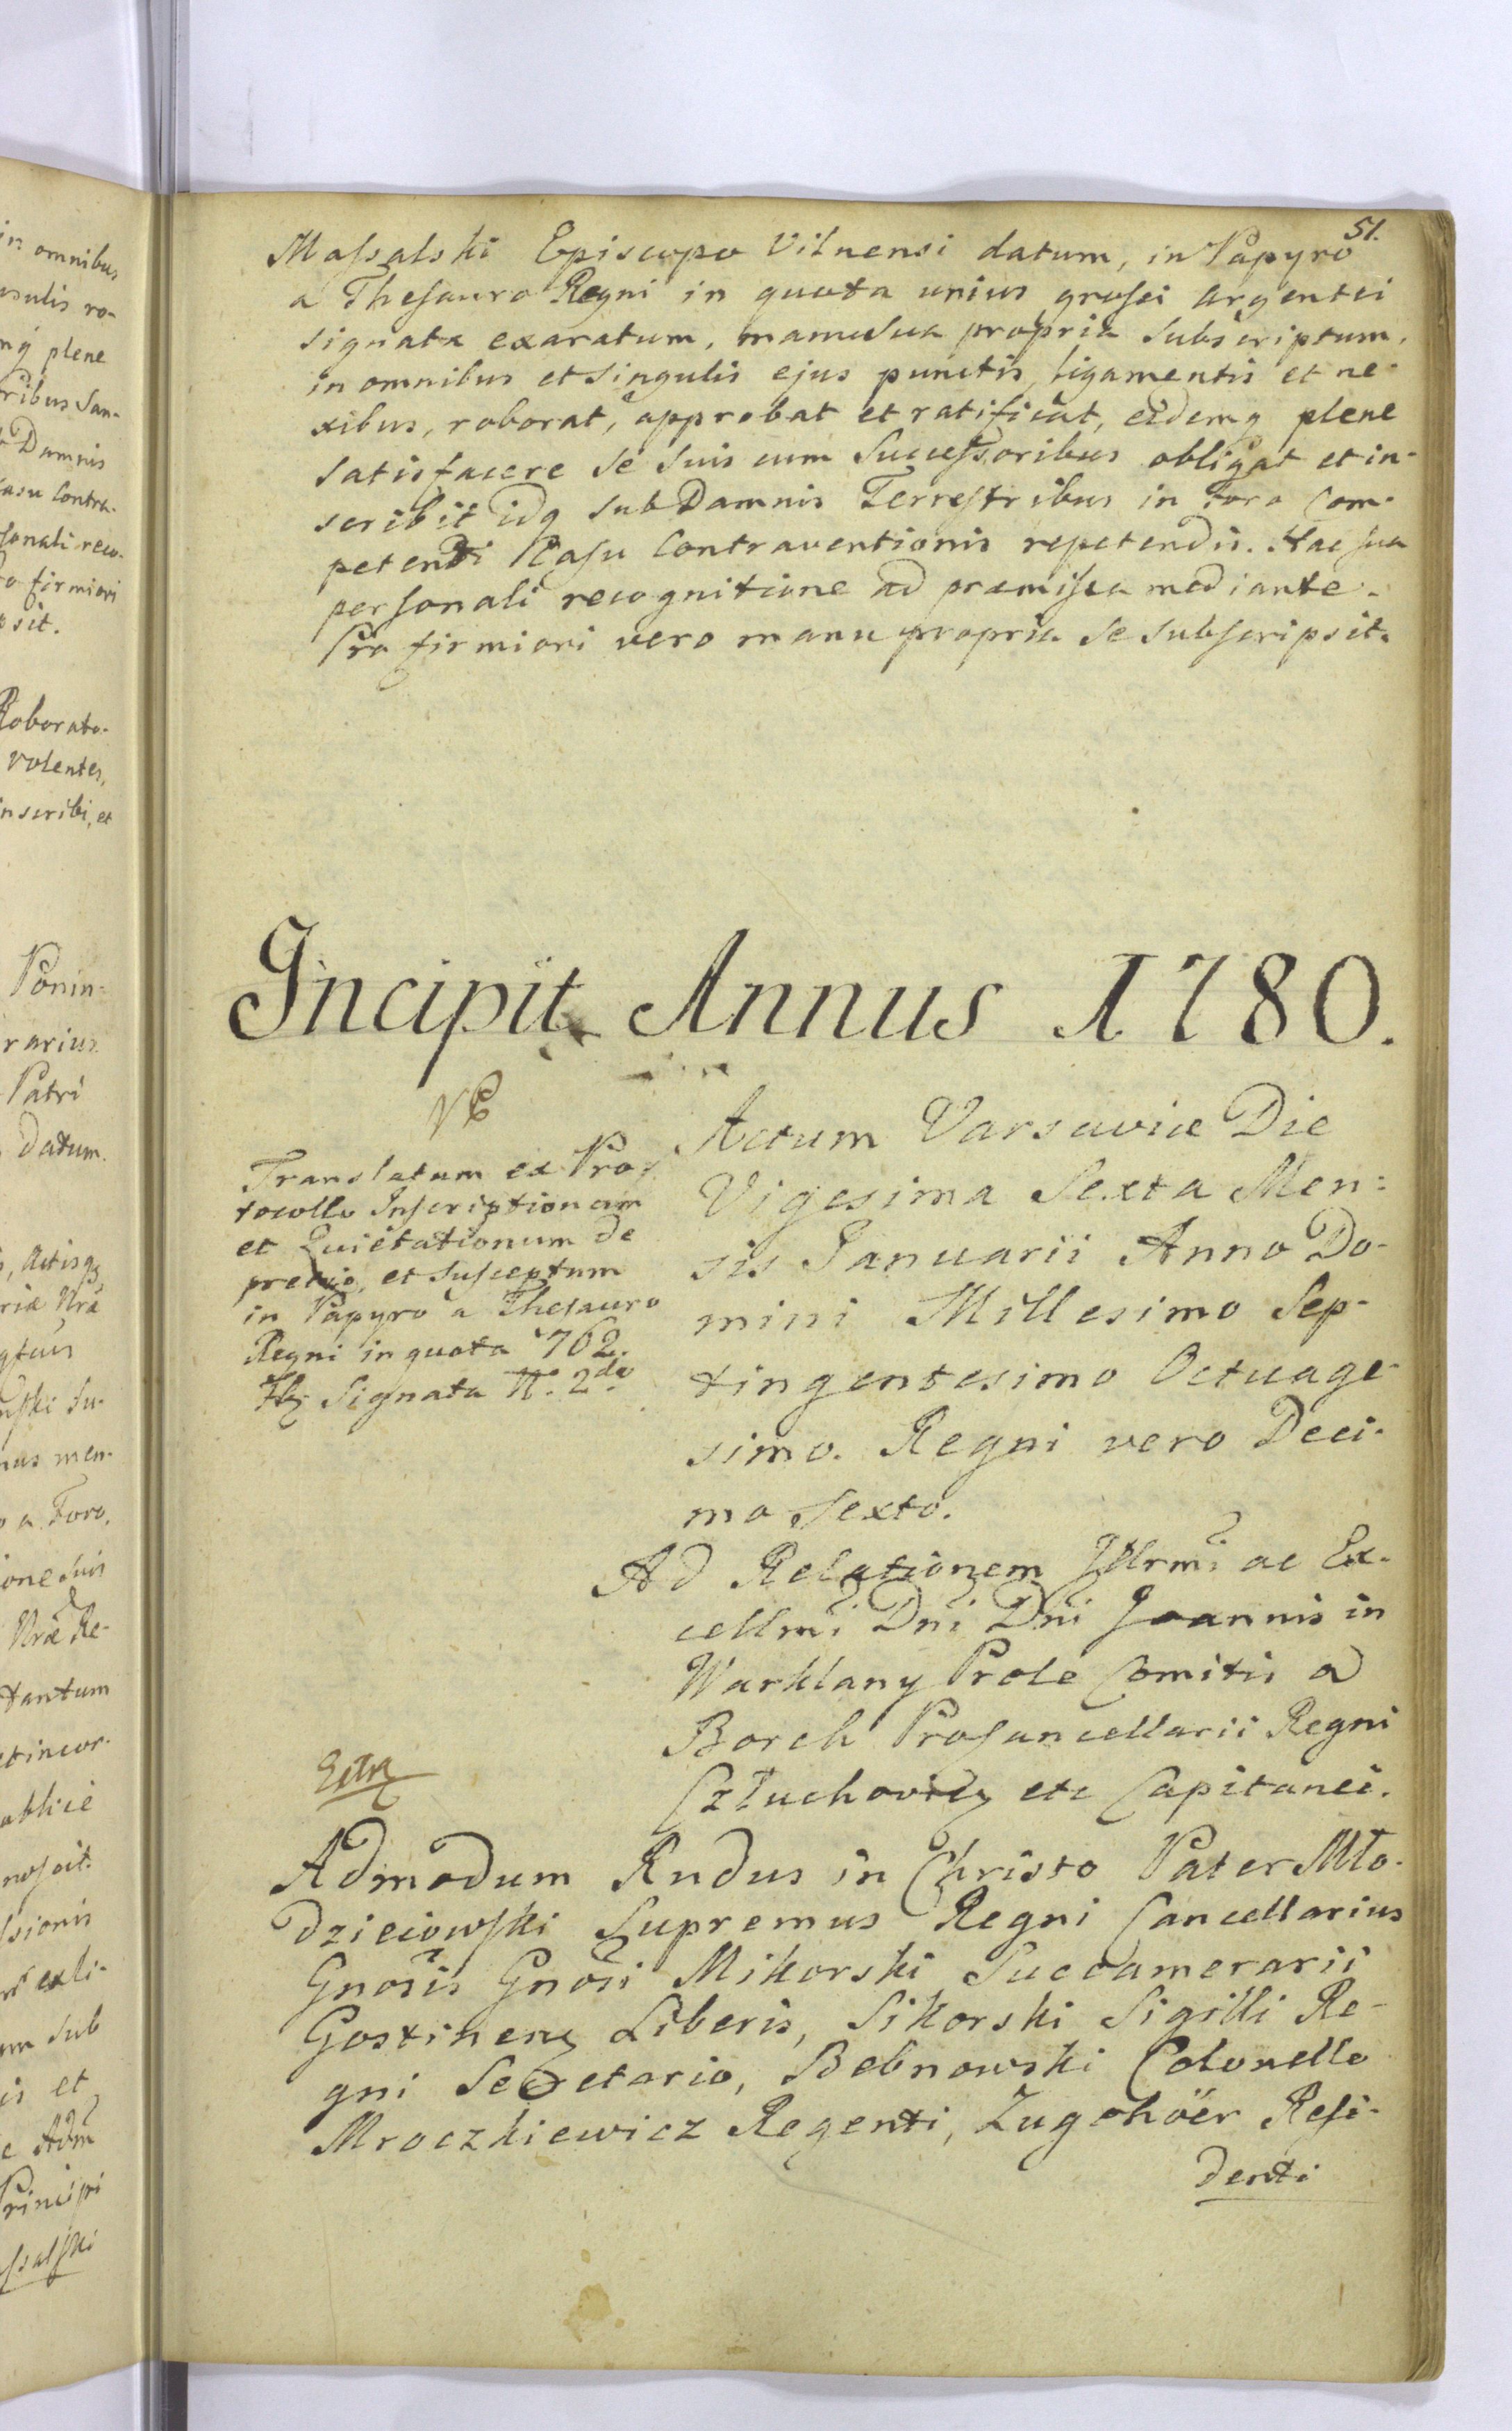 51.
Massalski Episcopo Vilnensi datum, in Papyro
a Thesauro Regni in quota unius grossi argentei
signata exaratum, manu sua propria subscriptum,
in omnibus et singulis ejus punctis, ligamentis et ne-
xibus, roborat, approbat et ratificat, eidemq plene
satisfacere se suis cum Successoribus obligat et in-
scribit idq sub Damnis Terrestribus in Foro Com-
petenti Casu Contraventionis repetendis. Hac sua
personali recognitione ad præmissa mediante.
Pro firmiori vero manu propria se subscripsit.
Incipit Annus 1780.
Translatum ex Pro-
tocollo Inscriptionum
et Quietationum de
et Susceptum
in Papyro a Thesauro
Regni in quota 762.
Signata N. 2do
Actum Varsaviæ Die
Vigesima Sexta Men-
sis Januarii Anno Do-
mini Millesimo Sep-
tingentesimo Octuage-
simo. Regni vero Deci-
mo Sexto.
Ad Relationem Illrmi ac Ex-
cellmi Dni Dni Joannis in
Warklany Prole Comitis a
Borch Procancellarii Regni
Człuchovien etc Capitanei.
Admodum Rndus in Christo Pater Mło-
dzieiowski Supremus Regni Cancellarius
Gnosis Gnosi Mikorski Succamerarii
Gostinen Liberis, Sikorski Sigilli Re-
gni Secretario, Bebnowski Colonello
Mroczkiewicz Regenti, Zugehöer Resi-
denti
in omnibus
plene
ribus Suc-
Damnis
casu Contra-
sonali reco-
firmiori
sit.
Roborato-
volentes,
inscribi, et
Ponin-
rarius
Patri
datum.
Actisq
tantum
sionis
sub
is et
Principi
ssalski